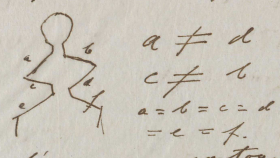 a b
c d
e f
a ≠ d
c ≠ b
a = b = c = d
= e = f.